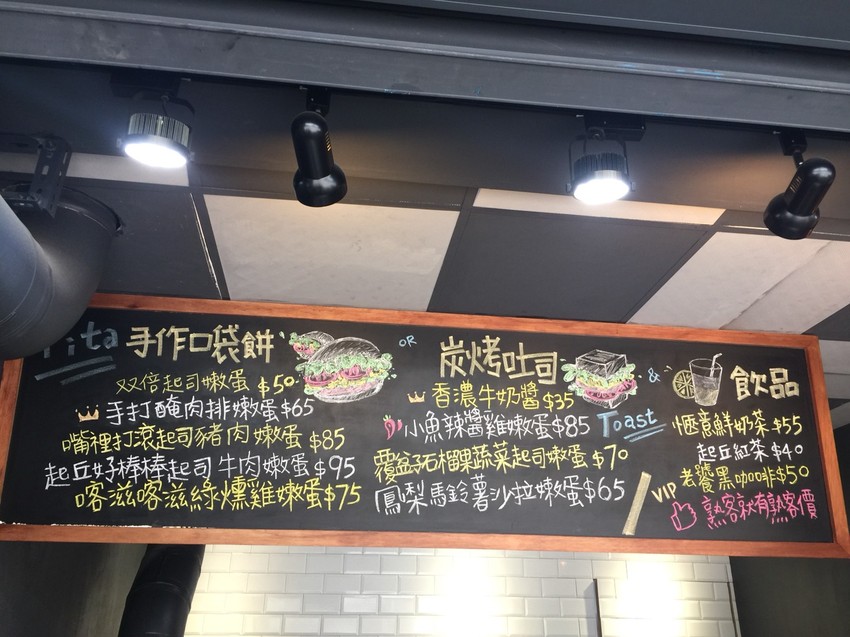 Pita 手作口袋餅
双倍起司嫩蛋 $50
手打醃肉排嫩蛋 $65
嘴裡打滾起司豬肉嫩蛋 $85
起丘好棒棒起司牛肉嫩蛋 $95
喀滋喀滋綠燻雞嫩蛋 $75
OR
炭烤吐司
香濃牛奶醬 $35
小魚辣醬雞嫩蛋 $85
Toast
覆盆子石榴果蔬菜起司嫩蛋 $70
鳳梨馬鈴薯沙拉嫩蛋 $65
&
飲品
愜意鮮奶茶 $55
起丘紅茶 $40
老饕黑咖啡 $50
VIP
熟客就有熟客價